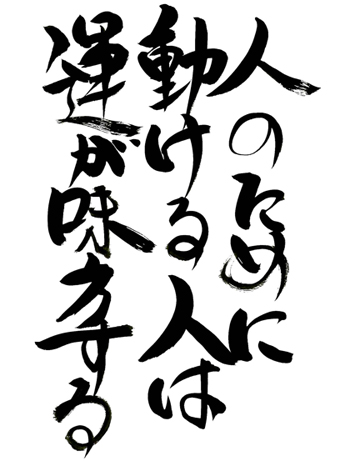 人のために
動ける人は
運が味方する